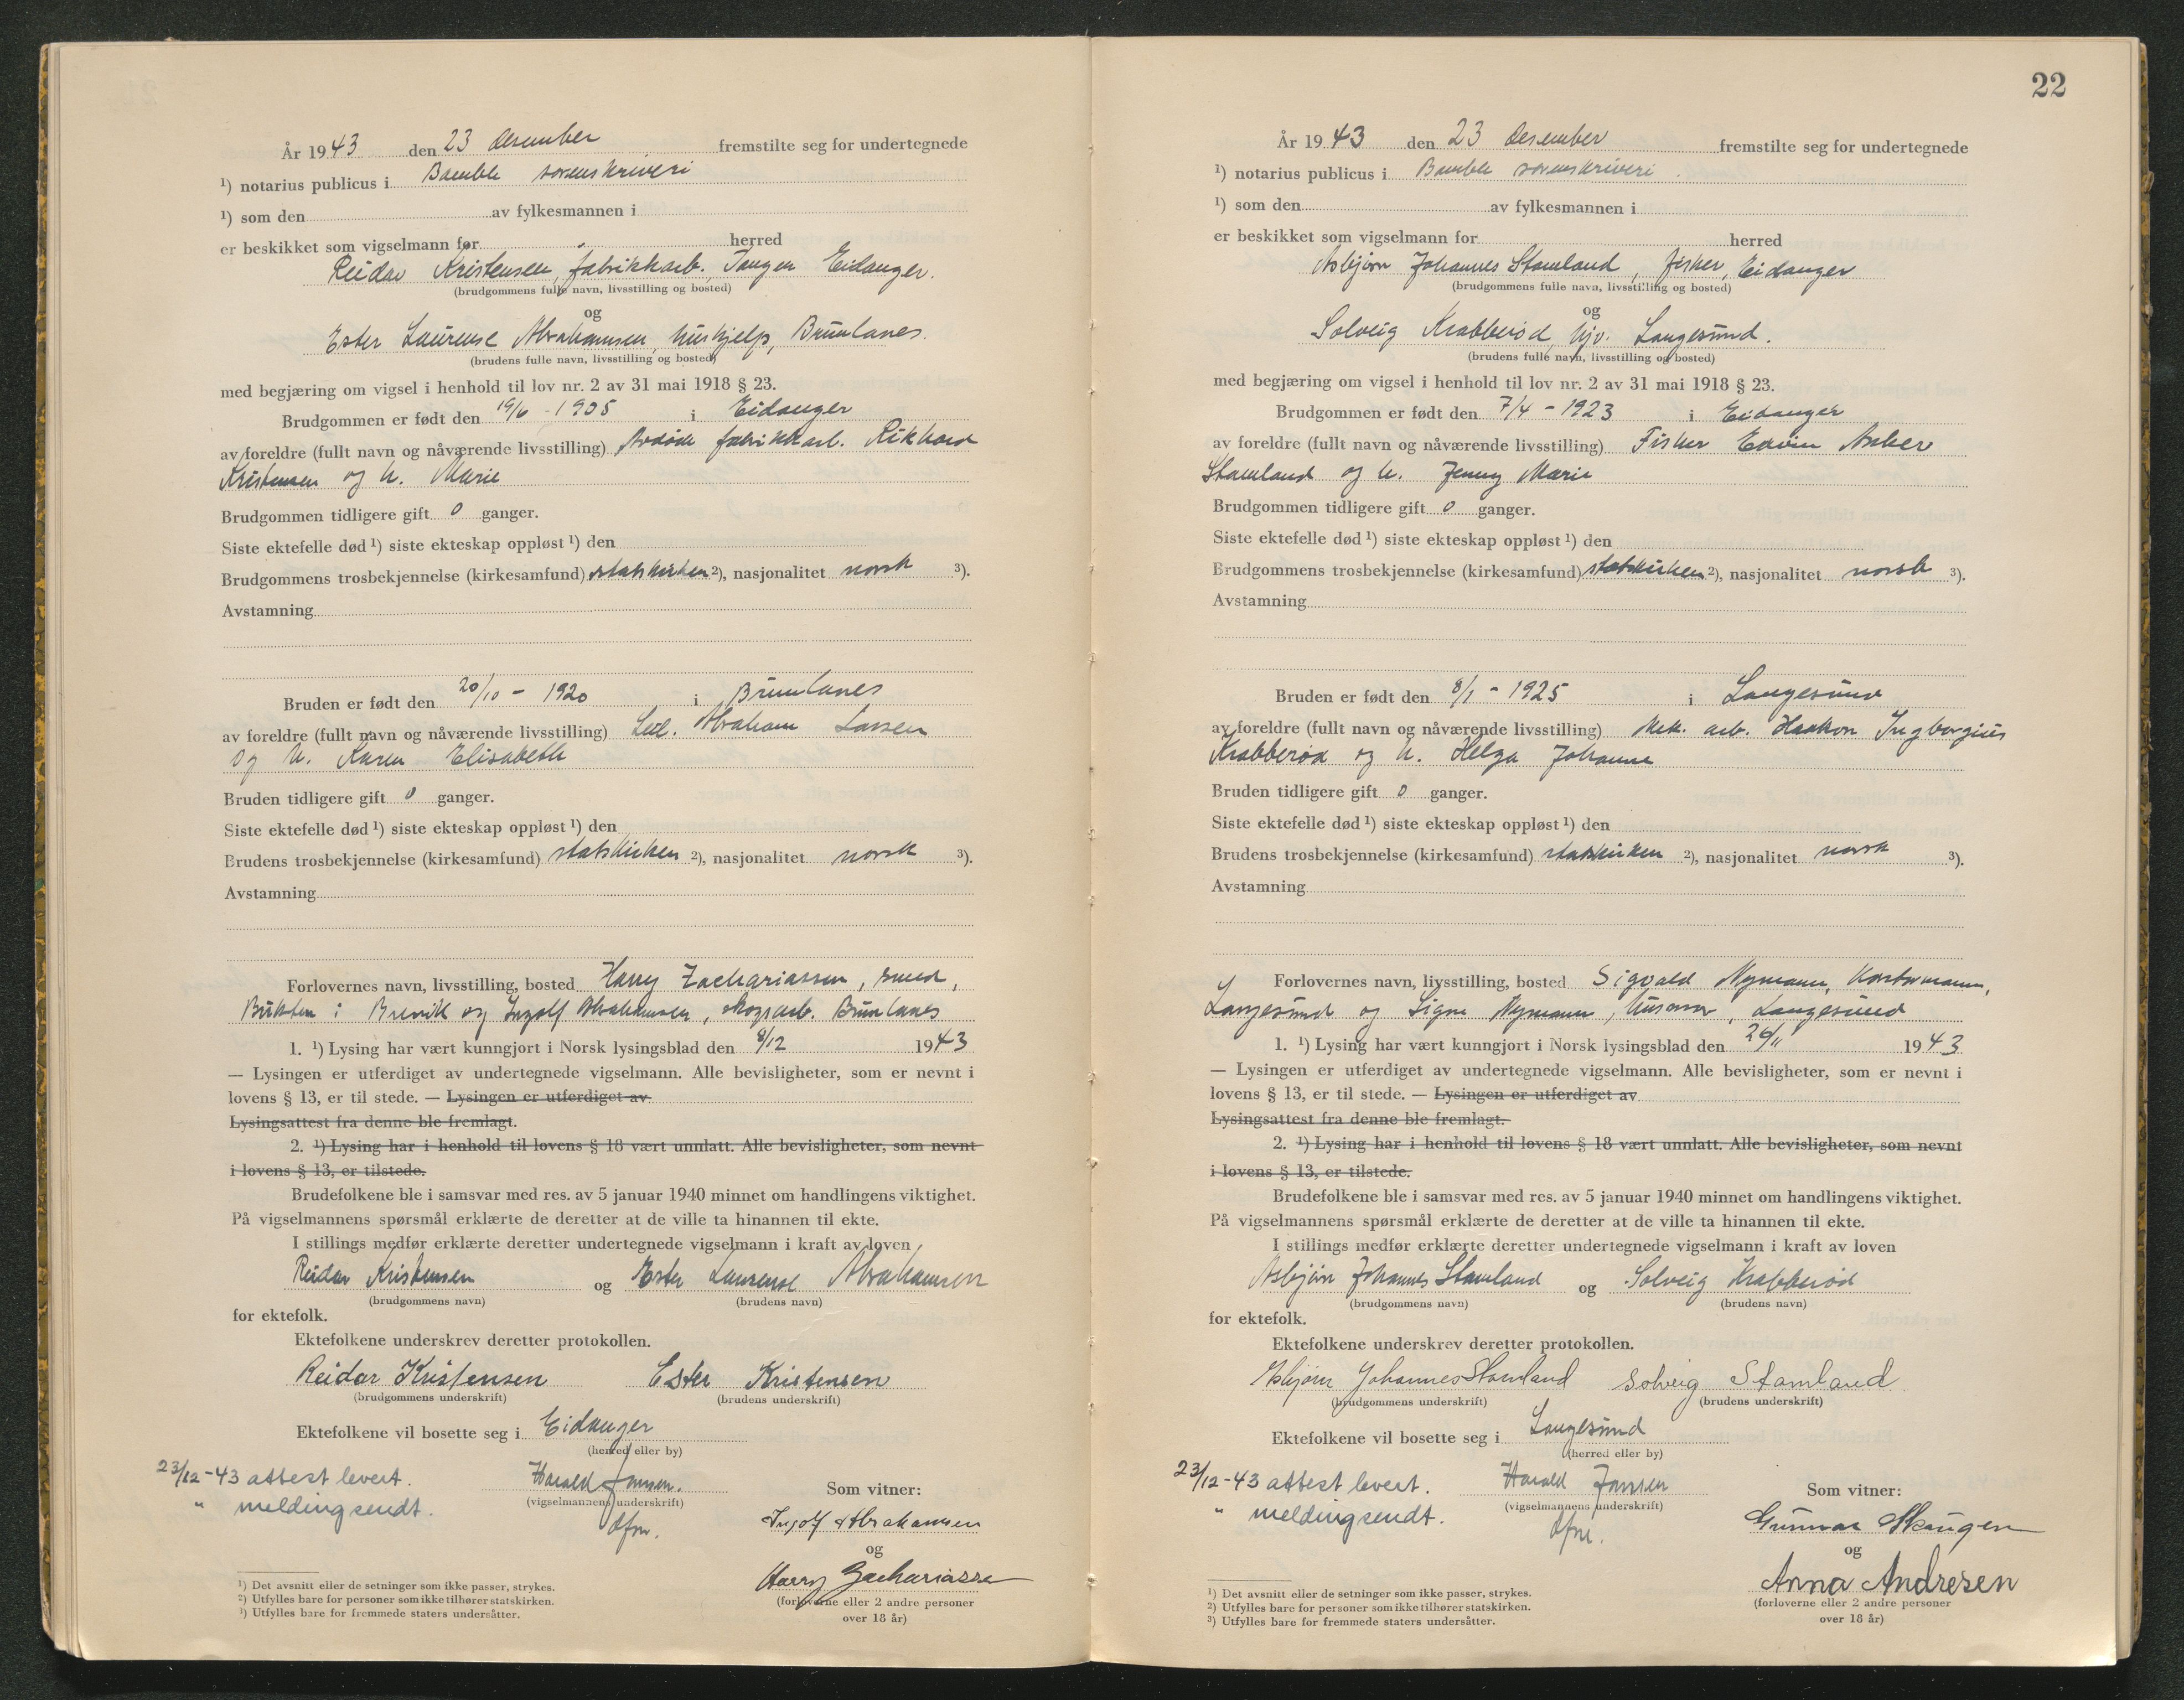 År 19 43 den 23 desember fremstilte seg for undertegnede
¹) notarius publicus i Bamble sorenskriveri
¹) som den av fylkesmannen i
er beskikket som vigselmann for herred
Reidar Kristensen, fabrikkarb., Tangen Eidanger.
(brudgommens fulle navn, livsstilling og bosted)
og
Ester Laurense Abrahamsen, hushjelp, Brunlanes.
(brudens fulle navn, livsstilling og bosted)
med begjæring om vigsel i henhold til lov nr. 2 av 31 mai 1918 § 23.
Brudgommen er født den 19/6 - 1905 i Eidanger
av foreldre (fullt navn og nåværende livsstilling) Avdøde fabrikkarb. Rikhard
Kristensen og h. Marie
Brudgommen tidligere gift 0 ganger.
Siste ektefelle død ¹) siste ekteskap oppløst ¹) den
Brudgommens trosbekjennelse (kirkesamfund) statskirken ²), nasjonalitet norsk ³).
Avstamning
Bruden er født den 20/10 - 1920 i Brunlanes
av foreldre (fullt navn og nåværende livsstilling) Abraham Larsen
og h. Karen Elisabeth
Bruden tidligere gift 0 ganger.
Siste ektefelle død ¹) siste ekteskap oppløst ¹) den
Brudens trosbekjennelse (kirkesamfund) statskirken ²), nasjonalitet norsk ³).
Avstamning
Forlovernes navn, livsstilling, bosted Harry Zachariassen, smed,
Bukten i Brevik og Ingolf Abrahamsen, skogsarb. Brunlanes
1. ¹) Lysing har vært kunngjort i Norsk lysingsblad den 8/12 19 43
— Lysingen er utferdiget av undertegnede vigselmann. Alle bevisligheter, som er nevnt i
lovens § 13, er til stede. — Lysingen er utferdiget av
Lysingsattest fra denne ble fremlagt.
2. ¹) Lysing har i henhold til lovens § 18 vært unnlatt. Alle bevisligheter, som nevnt
i lovens § 13, er tilstede.
Brudefolkene ble i samsvar med res. av 5 januar 1940 minnet om handlingens viktighet.
På vigselmannens spørsmål erklærte de deretter at de ville ta hinannen til ekte.
I stillings medfør erklærte deretter undertegnede vigselmann i kraft av loven
Reidar Kristensen og Ester Laurense Abrahamsen
(brudgommens navn) (brudens navn)
for ektefolk.
Ektefolkene underskrev deretter protokollen.
Reidar Kristensen Ester Kristensen
(brudgommens underskrift) (brudens underskrift)
Ektefolkene vil bosette seg i Eidanger
(herred eller by)
23/12-43 attest levert. Harald Jonsen.
(vigselmannens underskrift) Som vitner:
" melding sendt. Ofm.
Ingolf Abrahamsen
og
Harry Zachariassen
(forloverne eller 2 andre personer
over 18 år)
¹) Det avsnitt eller de setninger som ikke passer, strykes.
²) Utfylles bare for personer som ikke tilhører statskirken.
³) Utfylles bare for fremmede staters undersåtter.
22
År 19 43 den 23 desember fremstilte seg for undertegnede
¹) notarius publicus i Bamble sorenskriveri.
¹) som den av fylkesmannen i
er beskikket som vigselmann for herred
Asbjørn Johannes Stamland, fisker, Eidanger
(brudgommens fulle navn, livsstilling og bosted)
og
Solveig Krabberød, hjv. Langesund.
(brudens fulle navn, livsstilling og bosted)
med begjæring om vigsel i henhold til lov nr. 2 av 31 mai 1918 § 23.
Brudgommen er født den 7/4 - 1923 i Eidanger
av foreldre (fullt navn og nåværende livsstilling) Fisker Edvin Anker
Stamland og h. Jenny Marie
Brudgommen tidligere gift 0 ganger.
Siste ektefelle død ¹) siste ekteskap oppløst ¹) den
Brudgommens trosbekjennelse (kirkesamfund) statskirken ²), nasjonalitet norsk ³).
Avstamning
Bruden er født den 8/1 - 1925 i Langesund
av foreldre (fullt navn og nåværende livsstilling) Mek. arb. Haakon Ingborgius
Krabberød og h. Helga Johanne
Bruden tidligere gift 0 ganger.
Siste ektefelle død ¹) siste ekteskap oppløst ¹) den
Brudens trosbekjennelse (kirkesamfund) statskirken ²), nasjonalitet norsk ³).
Avstamning
Forlovernes navn, livsstilling, bosted Sigvald Nymann, Kontormann,
Langesund og Signe Nymann, husmor, Langesund
1. ¹) Lysing har vært kunngjort i Norsk lysingsblad den 26/11 19 43
— Lysingen er utferdiget av undertegnede vigselmann. Alle bevisligheter, som er nevnt i
lovens § 13, er til stede. — Lysingen er utferdiget av
Lysingsattest fra denne ble fremlagt.
2. ¹) Lysing har i henhold til lovens § 18 vært unnlatt. Alle bevisligheter, som nevnt
i lovens § 13, er tilstede.
Brudefolkene ble i samsvar med res. av 5 januar 1940 minnet om handlingens viktighet.
På vigselmannens spørsmål erklærte de deretter at de ville ta hinannen til ekte.
I stillings medfør erklærte deretter undertegnede vigselmann i kraft av loven
Asbjørn Johannes Stamland og Solveig Krabberød
(brudgommens navn) (brudens navn)
for ektefolk.
Ektefolkene underskrev deretter protokollen.
Asbjørn Johannes Stamland Solveig Stamland
(brudgommens underskrift) (brudens underskrift)
Ektefolkene vil bosette seg i Langesund
(herred eller by)
23/12-43 attest levert. Harald Jonsen
(vigselmannens underskrift) Som vitner:
" melding sendt. Ofm.
Gunnar Skaugen
og
Anna Andresen
(forloverne eller 2 andre personer
over 18 år)
¹) Det avsnitt eller de setninger som ikke passer, strykes.
²) Utfylles bare for personer som ikke tilhører statskirken.
³) Utfylles bare for fremmede staters undersåtter.